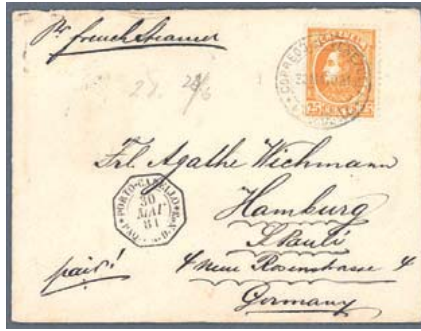 Pr french steamer
CORREOS
25 CENT
Frl. Agathe Wichmann
Hamburg
St Pauli
4 neue Rosenstrasse 4
Germany
PORTO-CABELLO
30
MAI
81
paid!